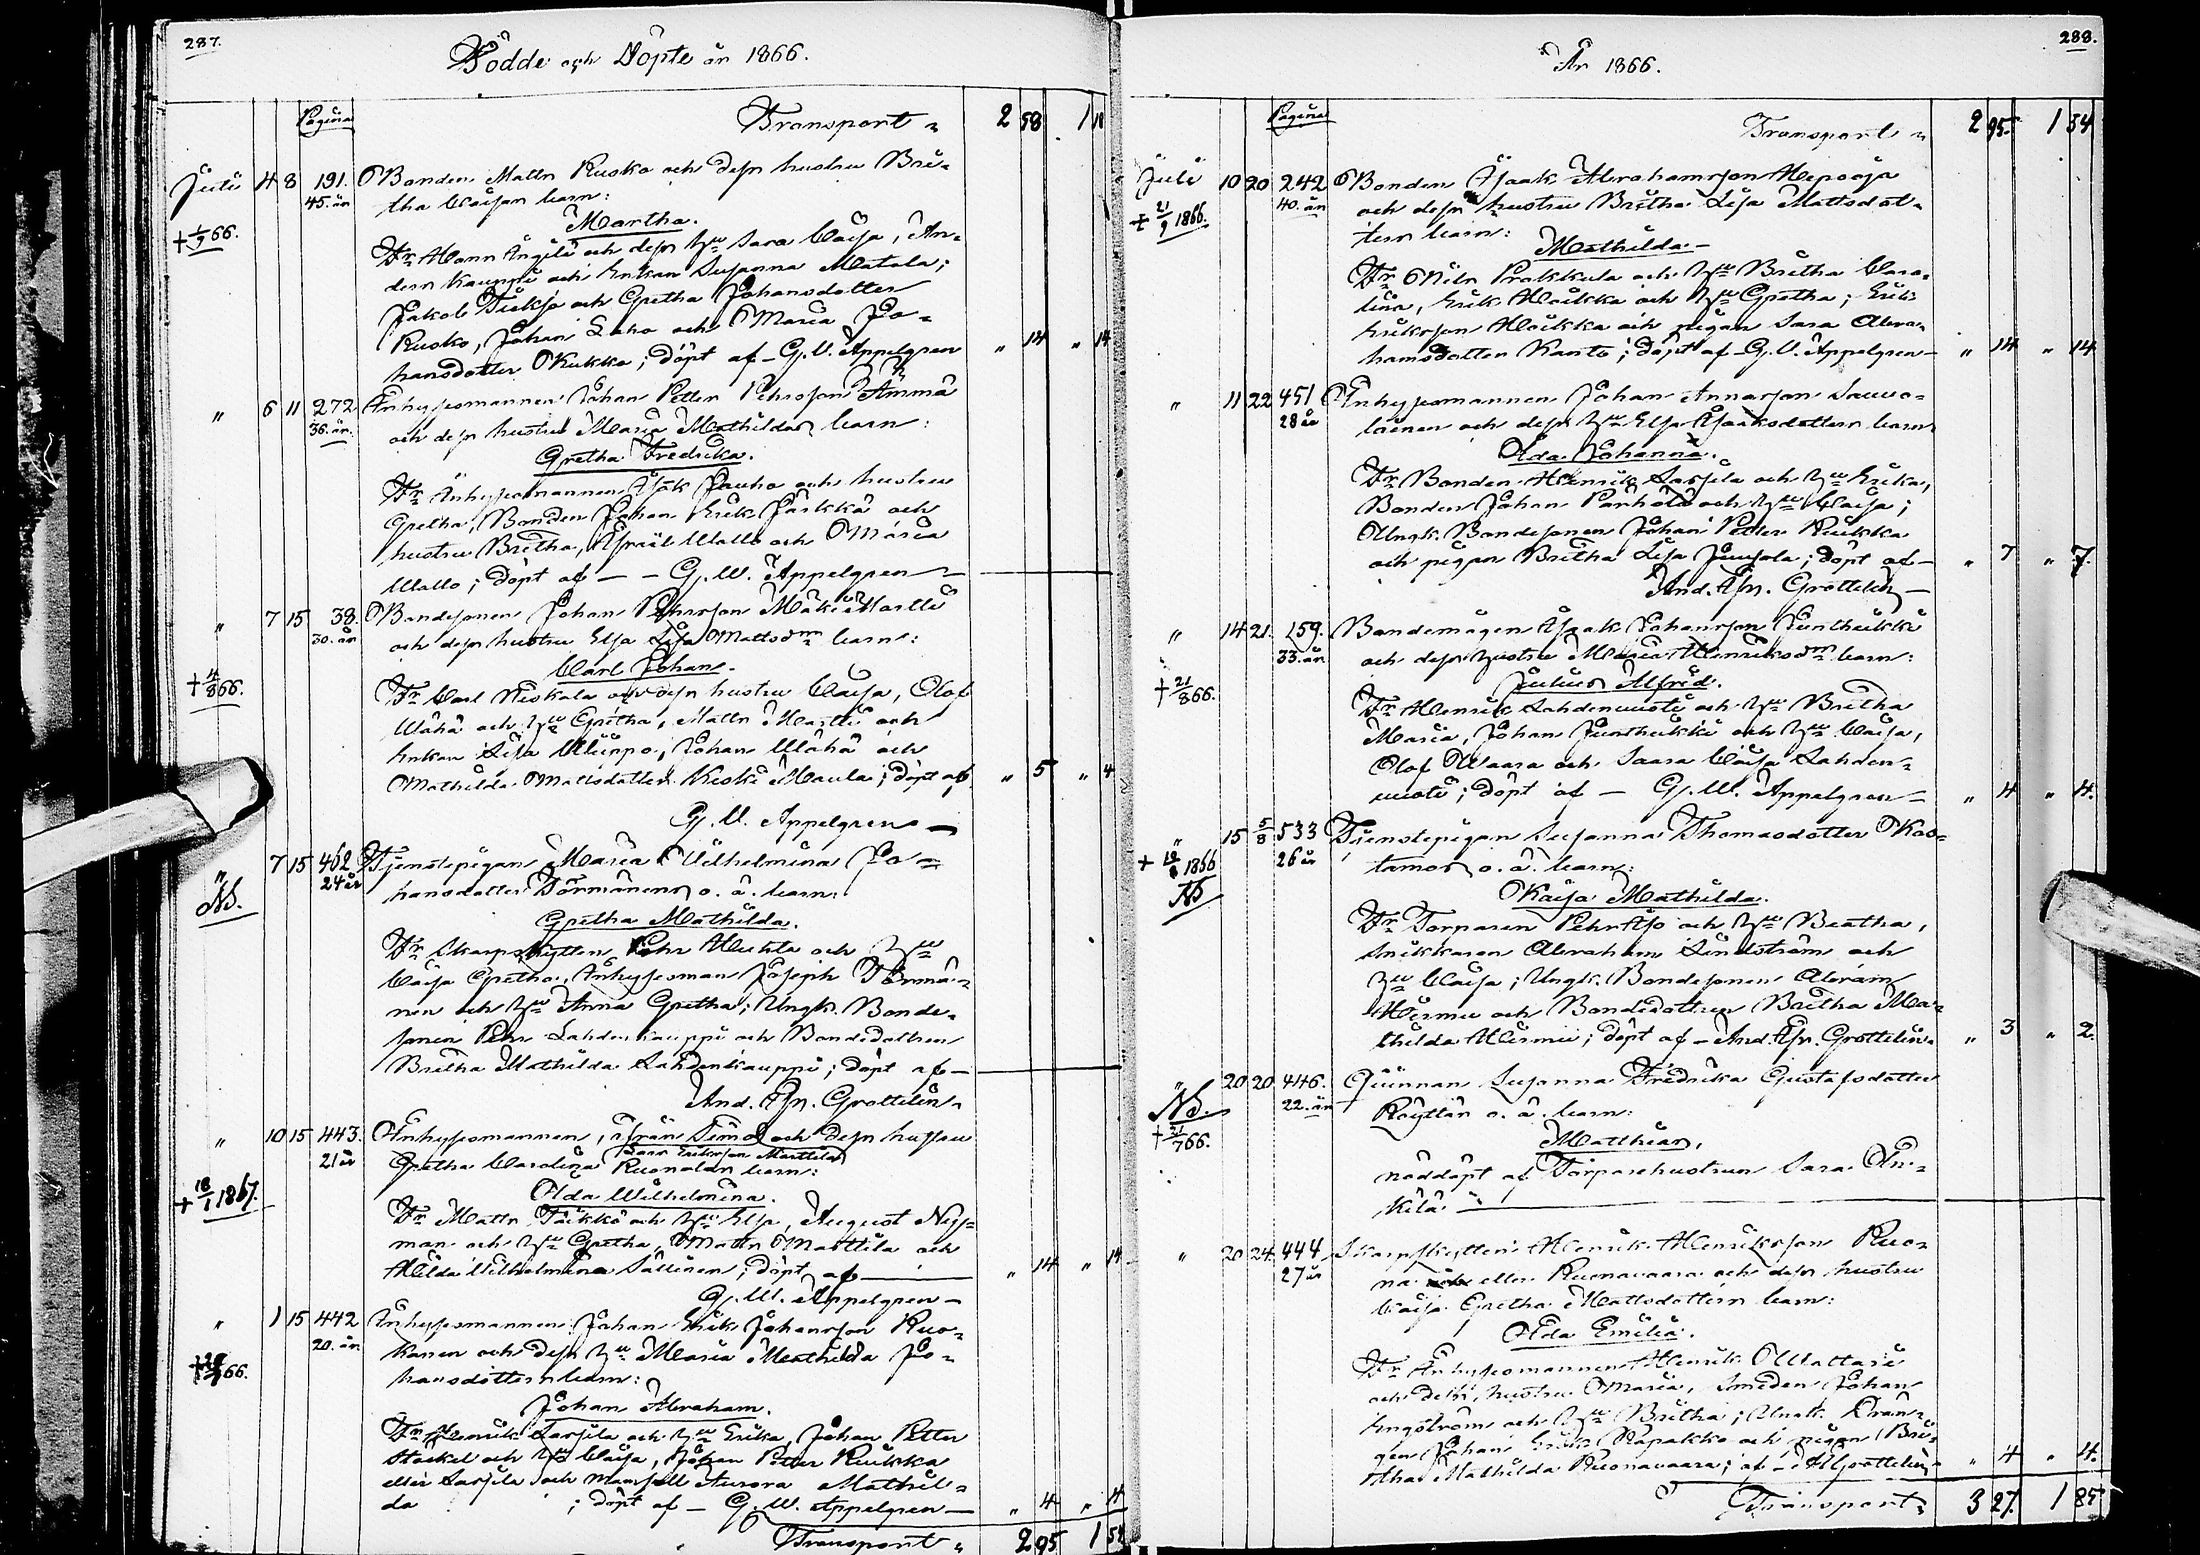 287.
Födde och Döpte år 1866.
Pagina
Transport „ 2 58 1 18
Juli 4 8 191. Bonden Matts Rusko och dess hustru Bri-
45. år tha Caisas barn:
Martha.
+ 1/9 66.
Fr. Hans Ängilä och dess hu Sara Caisa, An-
ders Kauppi och Enkan Susanna Matala;
Jakob Tickjö och Gretha Johansdotter
Rusko, Johan Laho och Maria Jo-
hansdotter Kukko; döpt af - G. W. Appelgren „ 14 „ 14
„ 6 11 272. Inhysesmannen Johan Petter Pehrsson Ämmä
36. år. och dess hustru Maria Mathildas barn:
Gretha Fredrika.
Fr. Inhysesmannen Isak Jauho och hustru
Gretha, Bonden Johan Erik Järkkä och
hustru Britha, Israel Wallo och Maria
Wallo; döpt af - - G. W. Appelgren -
„ 7 15 38. Bondesonen Johan Pehrsson Mäki Martti
30. år och dess hustru Elsa Lisa Mattsdrs barn:
Carl Johan.
+ 4/8 66.
Fr. Carl Niskala och dess hustru Caisa, Olof
Wähä och hu Gretha, Matts Martti och
Enkan Lisa Ulippo, Johan Wähä och
Mathilda Mattsdotter Keski Maula; döpt af „ 5 „ 4
G. W. Appelgren -
„ 7 15 462 Tjenstepigan Maria Wilhelmina Jo-
24 år hansdotter Törmänens o. ä. barn:
NB.
Gretha Mathilda.
Fr. Skarpskytten Pehr Huhta och hu
Caisa Gretha, Inhysesman Joseph Törmä-
nen och hu Anna Gretha; Ungk. Bonde-
sonen Pehr Lahdenkauppi och Bondedottren
Britha Mathilda Lahdenkauppi; döpt af -
And. Joh. Grottelin.
„ 10 15 443. Inhysesmannen, Isras Simo och dess hustru
21 år Gretha Carolina Ruonalas barn:
Isaac Eriksson Marttila
Ida Wilhelmina.
+ 18/1 1867.
Fr. Matts Täikkö och hu Elsa, August Ny-
man och hu Gretha, Matts Marttila och
Hilda Wilhelmina Sallinen; döpt af „ 14 „ 14
G. W. Appelgren -
„ 1 15 442 Inhysesmannen Johan Erik Johansson Ruo-
20. år kanen och dess hu Maria Mathilda Jo-
hansdotters barn:
Johan Abraham.
Fr. Henrik Sarjila och hu Erika, Johan Petter
Stockel och hu Caisa, Johan Petter Kiukka
eller Sarjila och Mamsell Aurora Mathil-
da ; döpt af - G. W. Appelgren - „ 4 „ 4
Transport „ 2 95 1 54
288.
År 1866.
Pagina
Transport „ 2 95. 1 54
Juli 10 20 242 Bonden Isaak Abrahamsson Hepooja
40. år och dess hustru Britha Lisa Mattsdot-
+ 21/9 1866. ters barn:
Mathilda -
Fr. Nils Prakkula och hu Britha Caro-
lina, Erik Waikka och hu Gretha; Erik
Eriksson Waikka och pigan Sara Abra-
hamsdotter Kanto; döpt af - G. W. Appelgren - „ 14 „ 14
„ 11 22 451 Inhysesmannen Johan Annasson Sauwo-
28 år lainen och dess hu Elsa Isaaksdotters barn
Ida Johanna.
Fr. Bonden Henrik Sarjila och hu Erika,
Bonden Johan Panhola och hu Caisa;
Ungk. Bondesonen Johan Petter Kiukka
och pigan Britha Lisa Junjola; döpt af - „ 7 „ 7.
And. Joh. Grottelin -
„ 14 21. 159. Bondemågen Isaak Johansson Junthikki
33. år och dess hustru Maria Henriksdrs barn:
Julius Alfred.
+ 21/8 66.
Fr. Henrik Lahdenuusti och hu Britha
Maria, Johan Junthikki och hu Caisa,
Olof Waara och Saara Caisa Lahden-
uusti; döpt af - G. W. Appelgren - „ 4 „ 4.
„ 15 5/8 533 Tjenstepigan Susanna Thomasdotter Kos-
26 år tamos o. ä. barn:
NB
Kaisa Mathilda.
Fr. Torparen Pehr Iso och hu Beatha,
Snikkaren Abraham Lindström och
hu Caisa; Ungk. Bondesonen Abram
Hirmu och Bondedottren Britha Ma-
thilda Hirmu; döpt af - And. Joh. Grottelin. „ 3 „ 2.
„ 20 20 446. Qvinnan Susanna Fredrika Gustafsdotter
22. år Röyttäs o. ä. barn:
NB.
+ 21/7 66.
Matthias,
nöddöpt af Torparehustrun Sara An-
kilä -
„ 20 24. 444 Skarpskytten Henrik Henriksson Ruo-
27 år na eller Ruonavaara och dess hustru
Caisa Gretha Mattsdotters barn:
Ida Emilia.
Fr. Inhysesmannen Henrik Wattari
och dess hustru Maria, Smeden Johan
Engström och hu Britha; Ungk. Drän-
gen Johan Erik Rapakko och pigan Bri-
tha Mathilda Ruonavaara; af - Grottelin. „ 4 „ 4.
Transport „ 3 27. 1 85